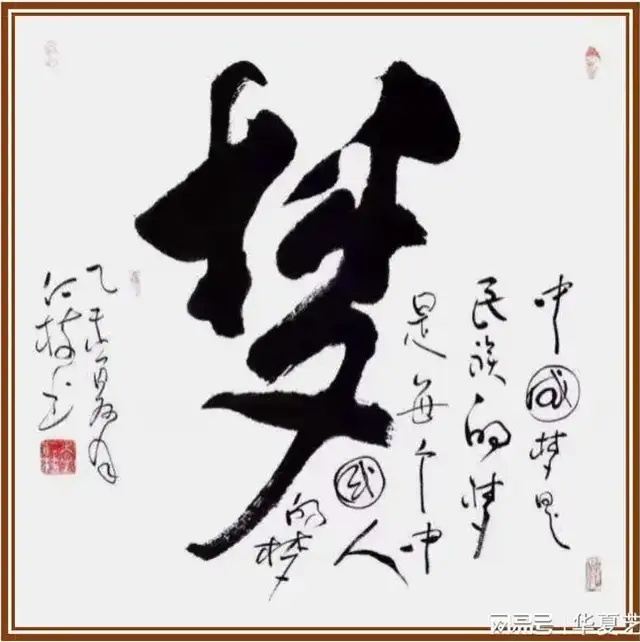 梦
中国梦是
民族的梦
是每个中
国人
的梦
乙未夏月
网易号 | 华夏艺